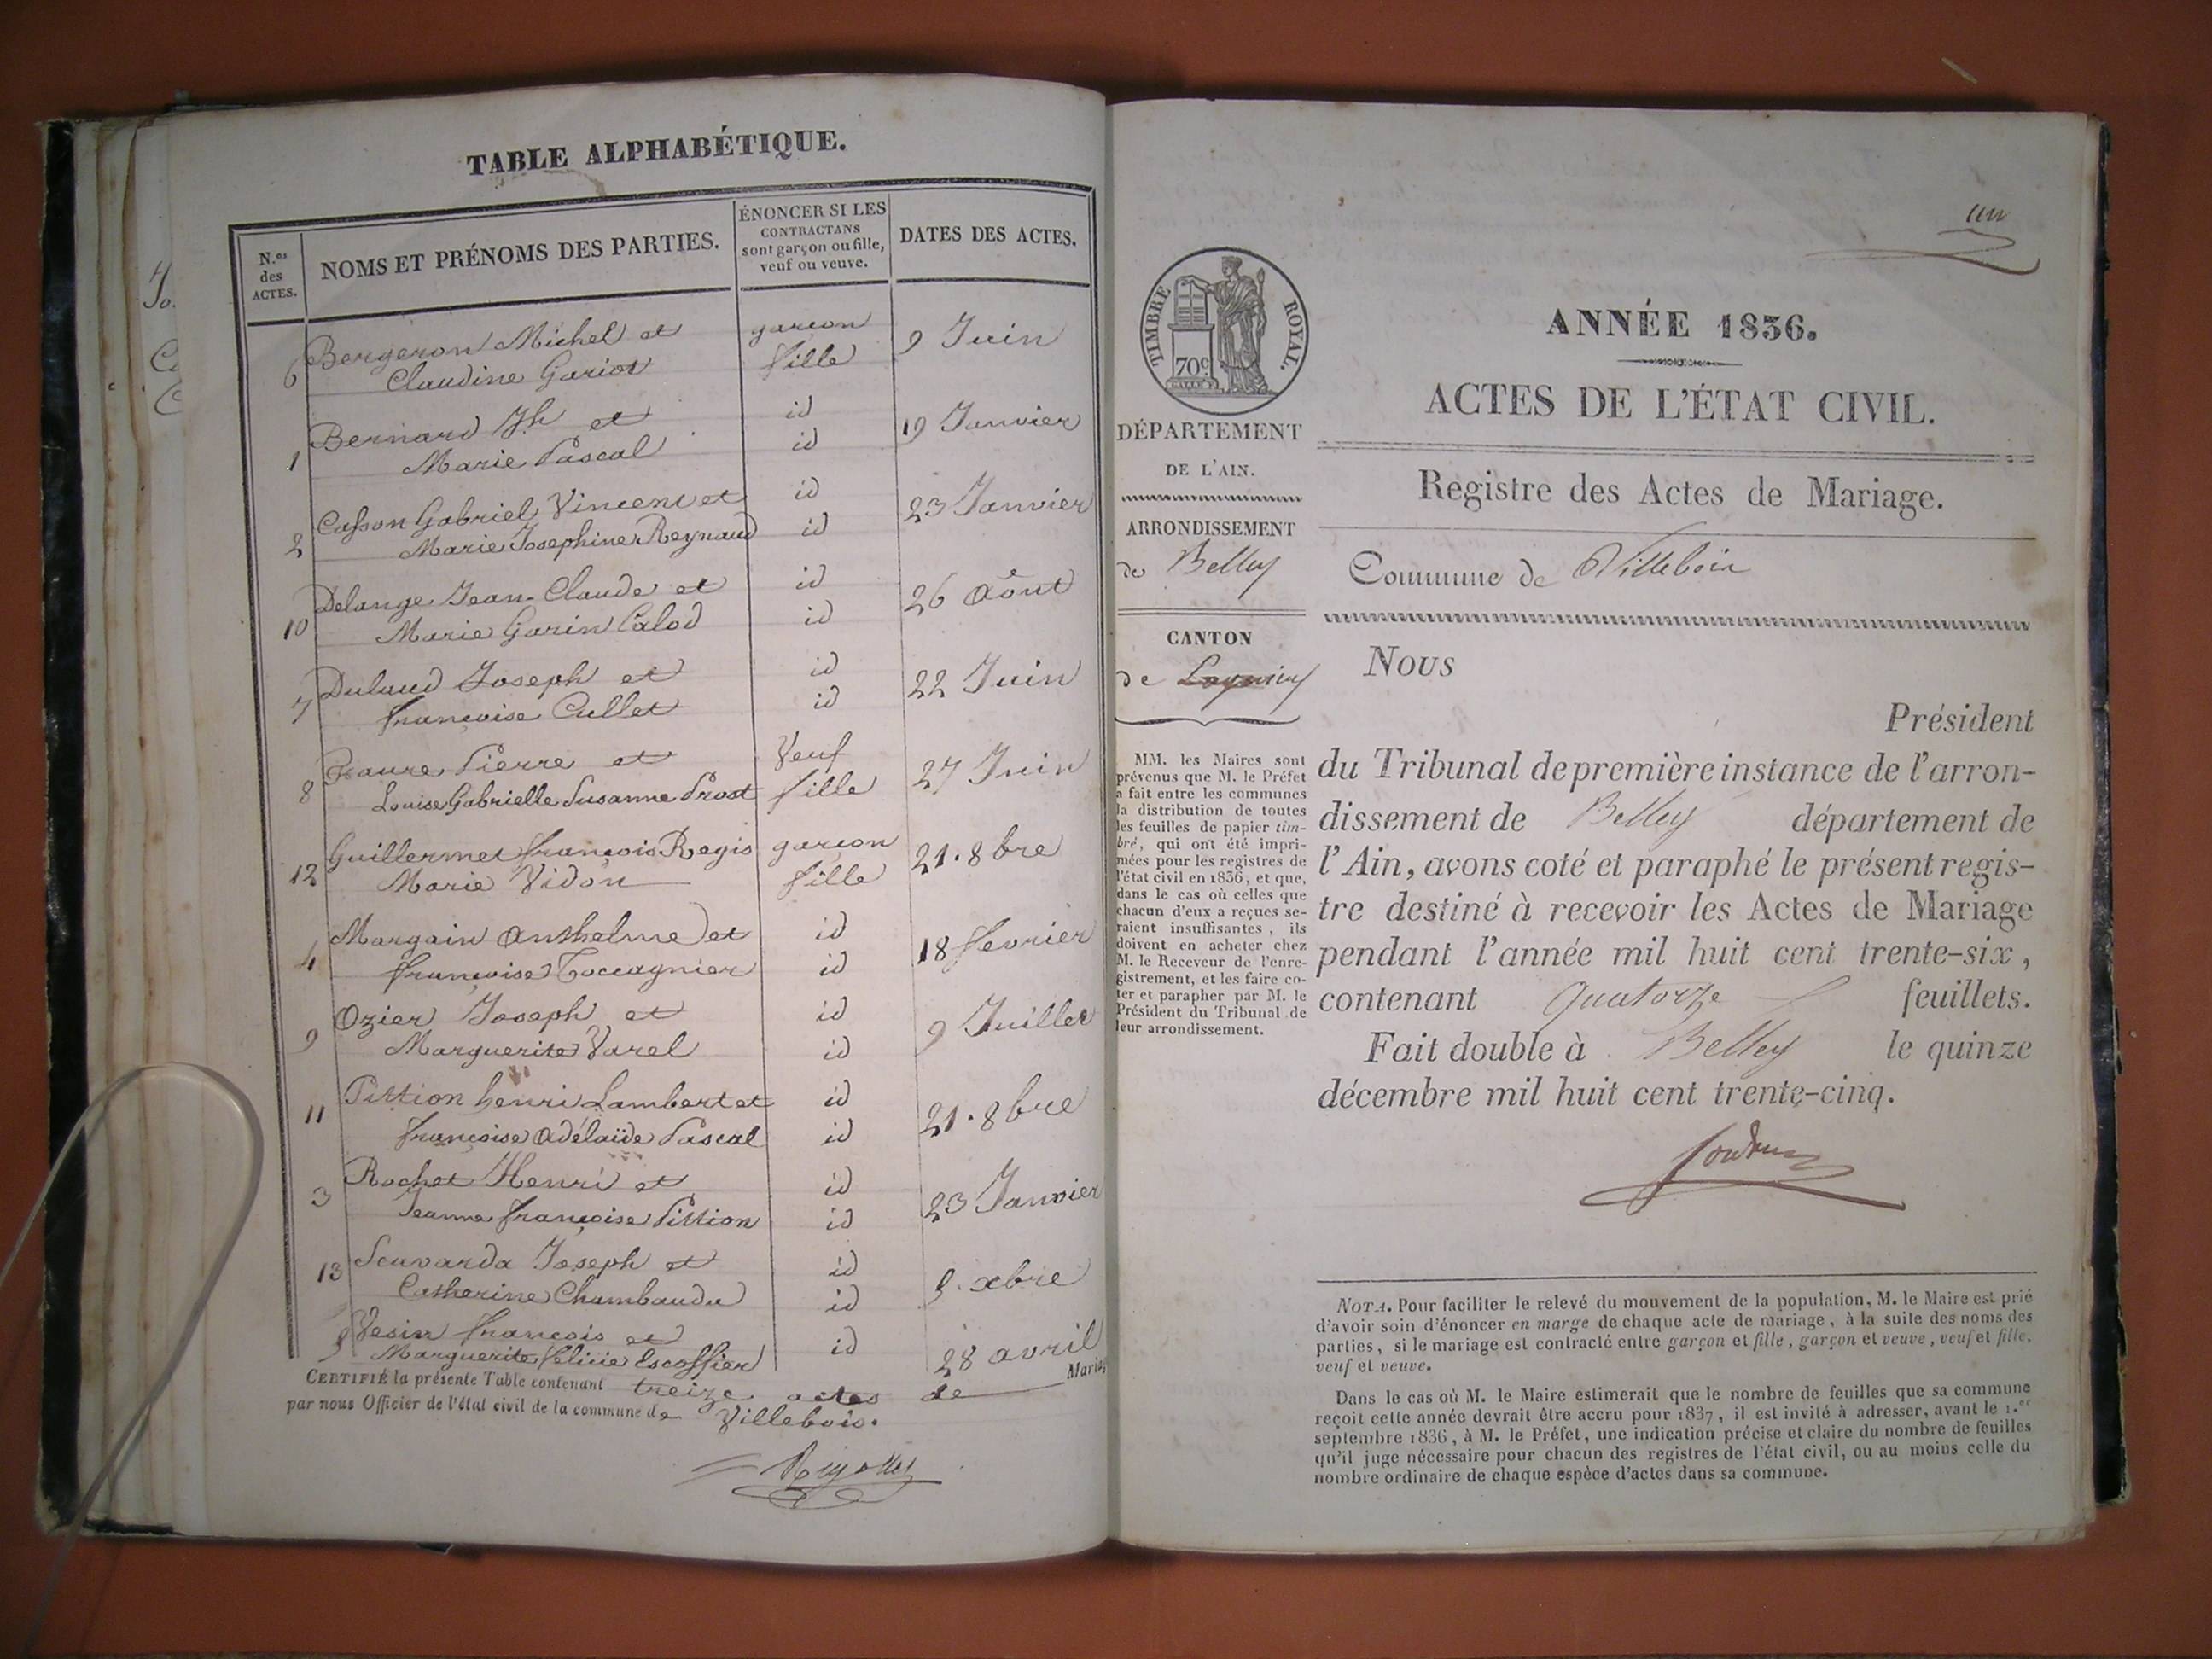 TABLE ALPHABÉTIQUE.
N.os des ACTES.
NOMS ET PRÉNOMS DES PARTIES.
ÉNONCER SI LES CONTRACTANS sont garçon ou fille, veuf ou veuve.
DATES DES ACTES.
6 Bergeron Michel et garcon 9 Juin
Claudine Gariot fille
1 Bernard Jh et id 19 Janvier
Marie Pascal id
2 Casson Gabriel Vincent et id 23 Janvier
Marie Josephine Reynaud id
10 Delange Jean-Claude et id 26 Août
Marie Garin Calod id
7 Dulaud Joseph et id 22 Juin
françoise Cullet id
8 Faure Pierre et Veuf 27 Juin
Louise Gabrielle Susanne Prost fille
12 Guillermet françois Regis garçon 21. 8bre
Marie Vidon fille
4 Margain Anthelme et id 18 fevrier
françoise Toccagnier id
9 Ozier Joseph et id 9 Juillet
Marguerite Varel id
11 Pittion henri Lambert et id 21. 8bre
françoise Adélaïde Pascal id
3 Rochet Henri et id 23 Janvier
Jeanne françoise Pittion id
13 Joseph et id xbre
Catherine id
5 Vesin françois et id 28 avril
Marguerite felicie Escoffier
CERTIFIÉ la présente Table contenant treize actes de Mariage
par nous Officier de l'état civil de la commune de Villebois.
un
TIMBRE ROYAL.
70c
DÉPARTEMENT
DE L'AIN.
ARRONDISSEMENT
de Belley
CANTON
de Lagnieu
MM. les Maires sont
prévenus que M. le Préfet
a fait entre les communes
la distribution de toutes
les feuilles de papier tim-
bré, qui ont été impri-
mées pour les registres de
l'état civil en 1836, et que,
dans le cas où celles que
chacun d'eux a reçues se-
raient insuffisantes, ils
doivent en acheter chez
M. le Receveur de l'enre-
gistrement, et les faire co-
ter et parapher par M. le
Président du Tribunal de
leur arrondissement.
ANNÉE 1836.
ACTES DE L'ÉTAT CIVIL.
Registre des Actes de Mariage.
Commune de Villebois
Nous
Président
du Tribunal de première instance de l'arron-
dissement de Belley département de
l'Ain, avons coté et paraphé le présent regis-
tre destiné à recevoir les Actes de Mariage
pendant l'année mil huit cent trente-six,
contenant Quatorze feuillets.
Fait double à Belley le quinze
décembre mil huit cent trente-cinq.
NOTA. Pour faciliter le relevé du mouvement de la population, M. le Maire est prié
d'avoir soin d'énoncer en marge de chaque acte de mariage, à la suite des noms des
parties, si le mariage est contracté entre garçon et fille, garçon et veuve, veuf et fille,
veuf et veuve.
Dans le cas où M. le Maire estimerait que le nombre de feuilles que sa commune
reçoit cette année devrait être accru pour 1837, il est invité à adresser, avant le 1.er
septembre 1836, à M. le Préfet, une indication précise et claire du nombre de feuilles
qu'il juge nécessaire pour chacun des registres de l'état civil, ou au moins celle du
nombre ordinaire de chaque espèce d'actes dans sa commune.